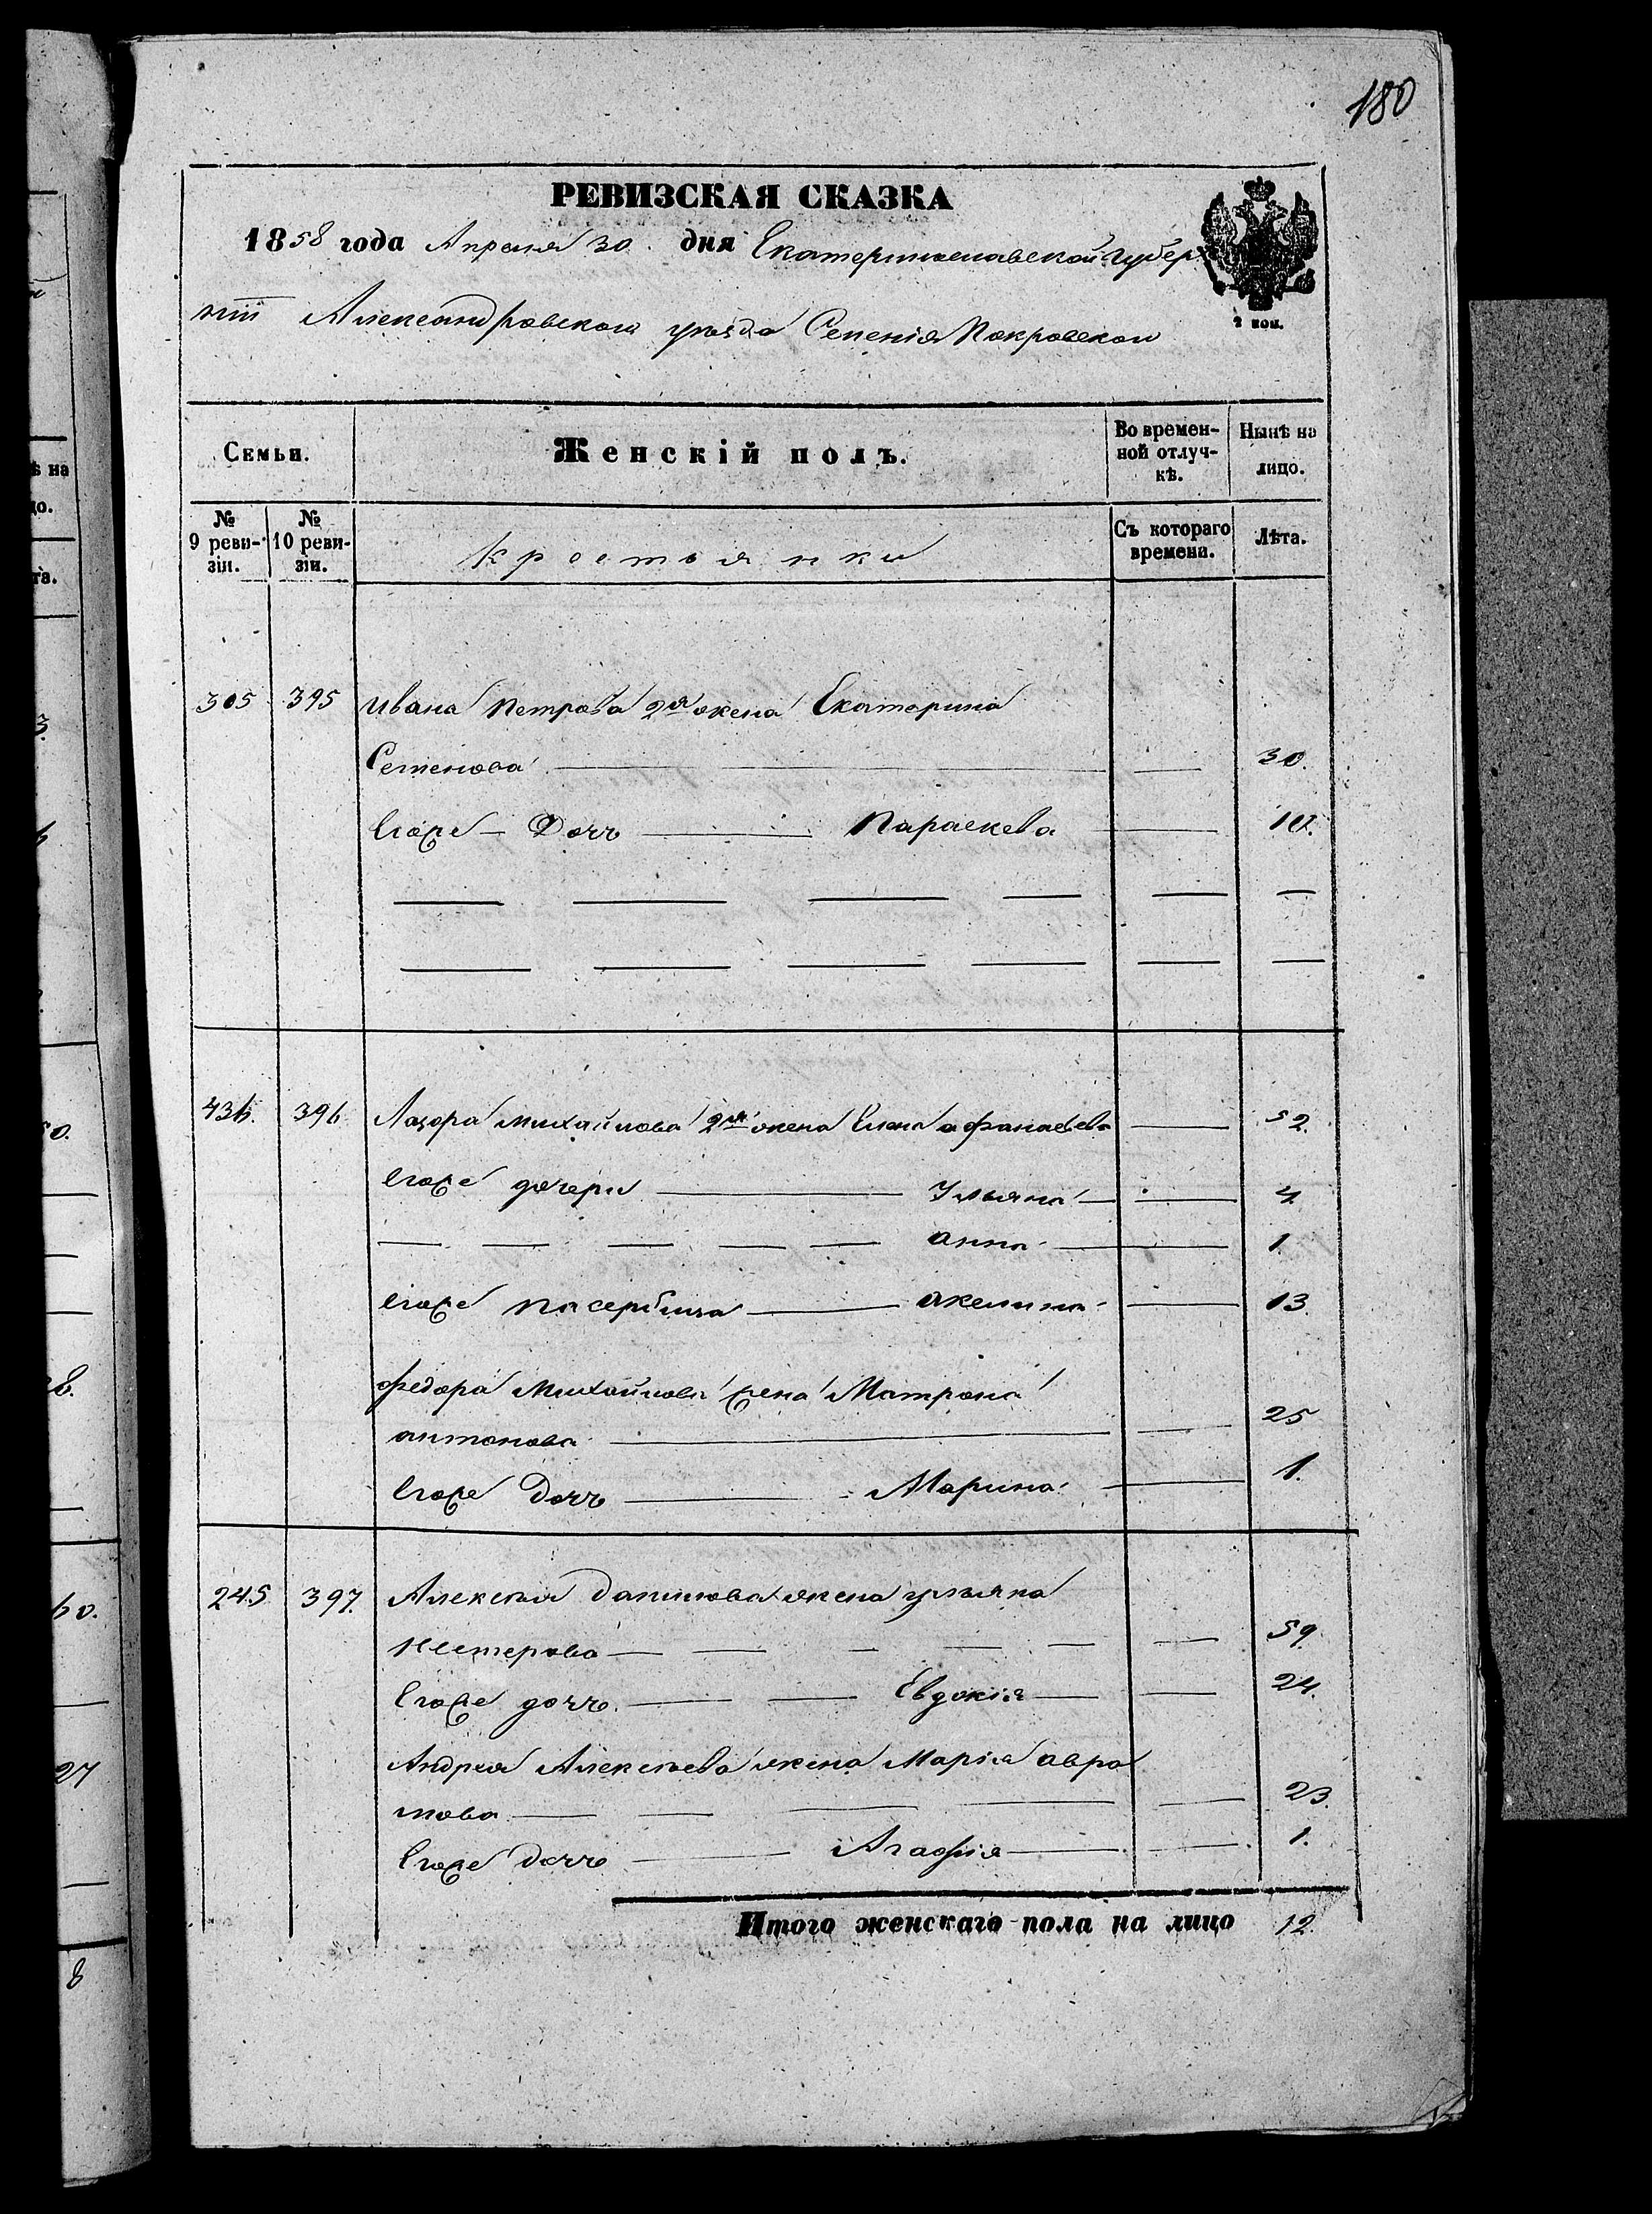 180
РЕВИЗСКАЯ СКАЗКА
1858 года Апреля 30. дня Екатеринославской губер
нiи Александровскаго уезда Селенiя Покровскаго
2 коп.
Семьи. Женскiй полъ. Во времен- Нынѣ на
ной отлуч- лицо.
кѣ.
№ № Крестьянки Съ котораго Лѣта.
9 реви- 10 реви- времени.
зiи. зiи.
305 395 Ивана Петрова 2я жена Екатерина
Семенова 30.
Егоже Дочь Параскева 10.
436. 396 Лазора Михайлова 2я жена Елена афанасьева 52.
Егоже дочери Ульяна 4
анна 1.
Егоже пасербица акелина 13.
Федора Михайлова жена Матрона
антонова 25
Егоже Дочь Марина 1.
245 397. Алексея Данилова жена ульяна
Нестерова 59.
Егоже дочь Евдокiя 24.
Андрея Алексеева жена Марiя авра
мова 23.
Егоже Дочь Агафiя 1.
Итого женскаго пола на лицо 12.